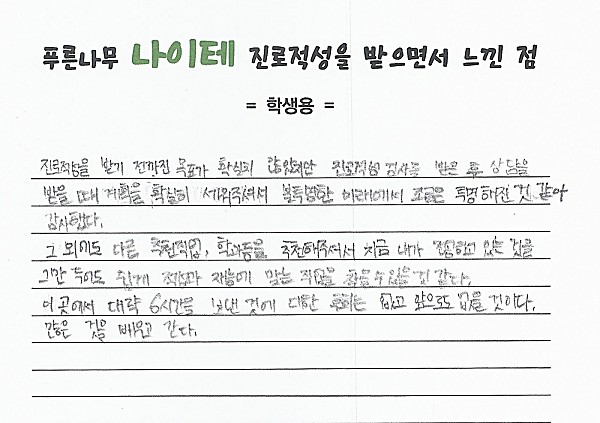 푸른나무 나이테 진로적성을 받으면서 느낀 점
= 학생용 =
진로적성을 받기 전까진 목표가 확실히 않았지만 진로적성 검사를 받은 후 상담을
받을 때 계획을 확실히 세워주셔서 불투명한 미래에서 조금은 투명해진 것 같아
감사했다.
그 외에도 다른 추천직업, 학과등을 추천해주셔서 지금 내가 전공하고 있는 것을
그만 두어도 쉽게 적성과 재능에 맞는 직업을 찾을 수 있을 것 같다.
이 곳에서 대략 6시간을 보낸 것에 대한 후회는 없고 앞으로도 없을 것이다.
많은 것을 배우고 간다.